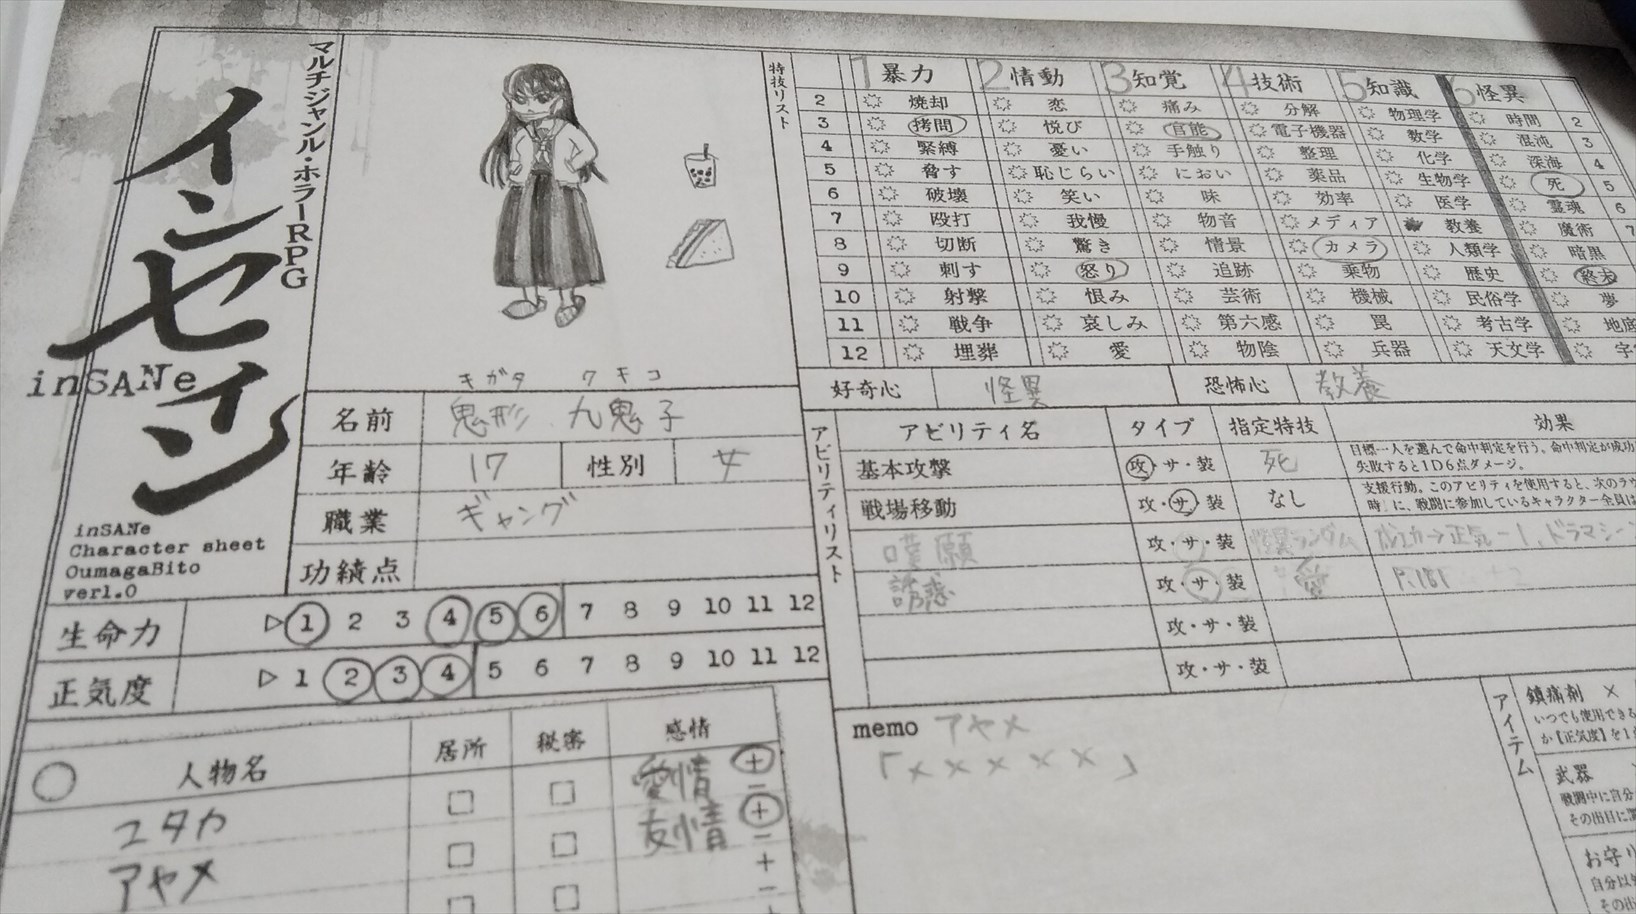 マルチジャンル・ホラーRPG
インセイン
inSANe
inSANe
Character sheet
OumagaBito
ver1.0
特技リスト
1 暴力 2 情動 3 知覚 4 技術 5 知識 6 怪異
2 焼却 恋 痛み 分解 物理学 時間 2
3 拷問 悦び 官能 電子機器 数学 混沌 3
4 緊縛 憂い 手触り 整理 化学 深海 4
5 脅す 恥じらい におい 薬品 生物学 死 5
6 破壊 笑い 味 効率 医学 霊魂 6
7 殴打 我慢 物音 メディア 教養 魔術 7
8 切断 驚き 情景 カメラ 人類学 暗黒
9 刺す 怒り 追跡 乗物 歴史 終末
10 射撃 恨み 芸術 機械 民俗学 夢
11 戦争 哀しみ 第六感 罠 考古学 地底
12 埋葬 愛 物陰 兵器 天文学
好奇心 怪異 恐怖心 教養
キガタ クキコ
名前 鬼形 九鬼子
年齢 17 性別 女
職業 ギャング
功績点
生命力 ▷ 1 2 3 4 5 6 7 8 9 10 11 12
正気度 ▷ 1 2 3 4 5 6 7 8 9 10 11 12
人物名 居所 秘密 感情
ユタカ □ □ 愛情 + −
アヤメ □ □ 友情 + −
□ □ + −
アビリティリスト
アビリティ名 タイプ 指定特技 効果
基本攻撃 攻・サ・装 死 目標一人を選んで命中判定を行う。命中判定が成功
失敗すると1D6点ダメージ。
戦場移動 攻・サ・装 なし 支援行動。このアビリティを使用すると、次のラウ
時」に、戦闘に参加しているキャラクター全員は
嘆願 攻・サ・装 怪異ランダム 正気-1、ドラマシーン
誘惑 攻・サ・装 愛 P.181
攻・サ・装
攻・サ・装
memo アヤメ
「×××××」
アイテム
鎮痛剤 ×
いつでも使用できる
か【正気度】を1
武器
戦闘中に自分
その出目に
お守り
自分以
その出